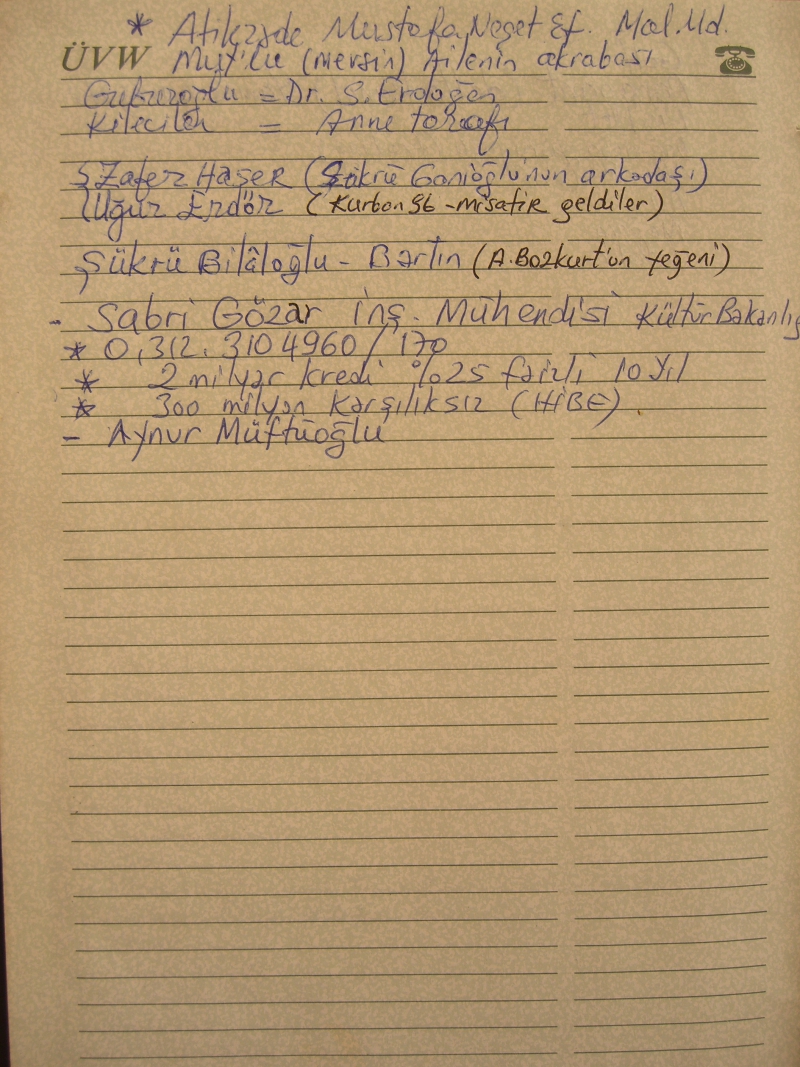 * Atikzade Mustafa Neşet Ef. Mal.Md.
ÜVW Mut'lu (Mersin) Ailenin akrabası
= Dr. S. Erdoğan
= Anne tarafı
Zafer Haşer (Şükrü Ganioğlu'nun arkadaşı)
Uğur Erdör (Kurban 96 - misafir geldiler)
Şükrü Bilâloğlu - Bartın (A.Bozkurt'un yeğeni)
- Sabri Gözar İnş. Mühendisi Kültür Bakanlığ
* 0.312. 310 4960 / 170
* 2 milyar kredi %25 faizli 10 yıl
* 300 milyon karşılıksız (HİBE).
- Aynur Müftüoğlu